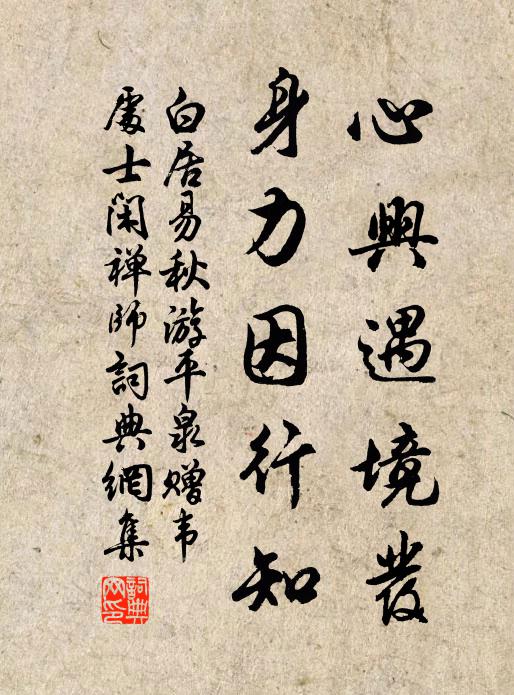 心興遇境發
身力因行知
白居易秋游平泉赠韦
處士閑禅師詞典網集
詞典網印